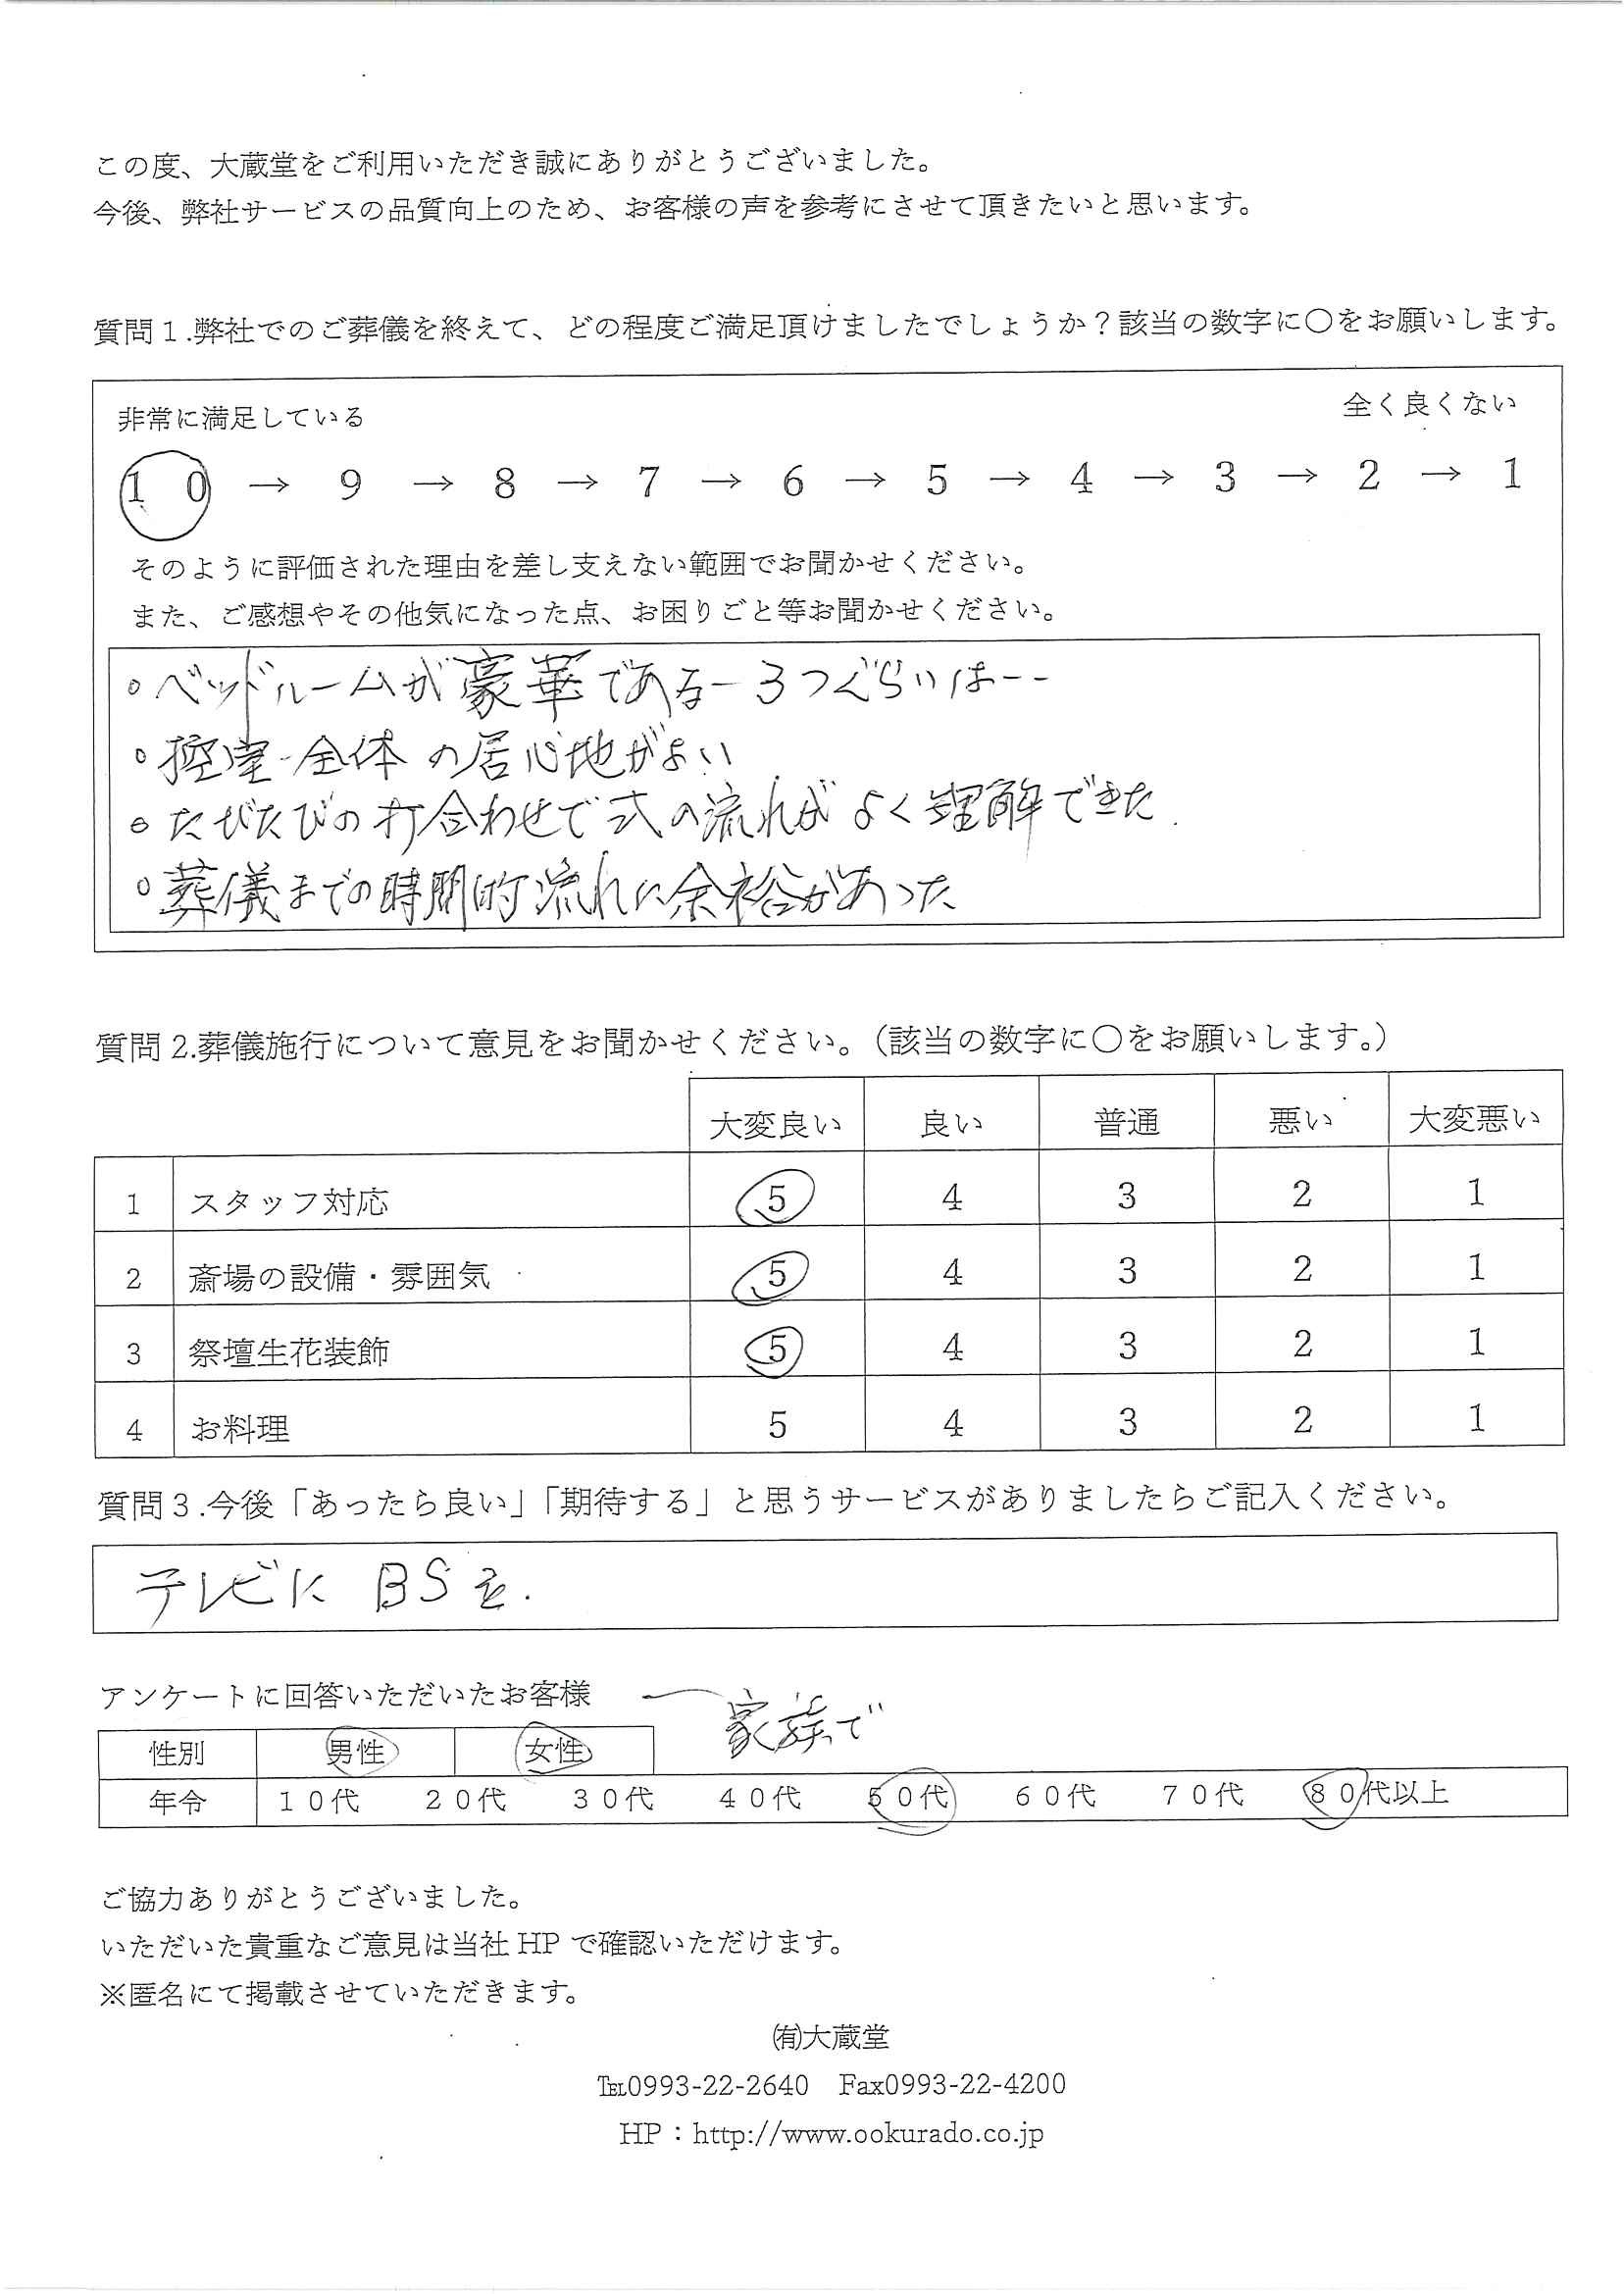 この度、大蔵堂をご利用いただき誠にありがとうございました。
今後、弊社サービスの品質向上のため、お客様の声を参考にさせて頂きたいと思います。
質問1.弊社でのご葬儀を終えて、どの程度ご満足頂けましたでしょうか？該当の数字に〇をお願いします。
非常に満足している 全く良くない
10 → 9 → 8 → 7 → 6 → 5 → 4 → 3 → 2 → 1
そのように評価された理由を差し支えない範囲でお聞かせください。
また、ご感想やその他気になった点、お困りごと等お聞かせください。
○ベッドルームが豪華である-3つぐらいは--
○控室全体の居心地がよい
○たびたびの打合わせで式の流れがよく理解できた.
○葬儀までの時間的流れに余裕があった
質問2.葬儀施行について意見をお聞かせください。（該当の数字に〇をお願いします。）
大変良い 良い 普通 悪い 大変悪い
1 スタッフ対応 5 4 3 2 1
2 斎場の設備・雰囲気 5 4 3 2 1
3 祭壇生花装飾 5 4 3 2 1
4 お料理 5 4 3 2 1
質問3.今後「あったら良い」「期待する」と思うサービスがありましたらご記入ください。
テレビに BSを.
アンケートに回答いただいたお客様
家族で
性別 男性 女性
年令 10代 20代 30代 40代 50代 60代 70代 80代以上
ご協力ありがとうございました。
いただいた貴重なご意見は当社HPで確認いただけます。
※匿名にて掲載させていただきます。
㈲大蔵堂
℡0993-22-2640 Fax0993-22-4200
HP：http://www.ookurado.co.jp